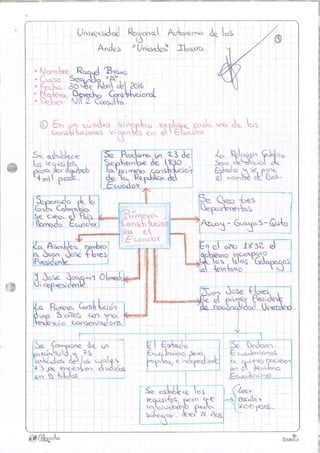 Universidad Regional Autonoma de los
Andes "Uniandes" Ibarra
③
• Nombre: Raquel Bravo
• Curso: Segundo "A"
• Fecha: 30 de Abril del 2016
• Materia: Derecho Constitucional
• Deber: Nº 2 Consulta
① En un cuadro sinoptico explique cada una de las
Constituciones vigentes en el Ecuador
Se establece
los requisitos
para ser diputado
4 mil pesos.
Se Proclama un 23 de
Septiembre de 1830
la primera constitución
de la Republica del
Ecuador
La Religion
del
Estado y se pone
el nombre de Dios.
Separando de la
Gran Colombia
Se crea el País
llamado Ecuador
La Primera
Constitucion
en el
Ecuador
Se Creo tres
Departamentos
Azuay - Guayas - Quito
La Asamblea nombra
a Juan Jose Flores
Presidente
En el año 1832 el
gobierno incorporo
las Islas Galapagos
al territorio
Y Jose Joaquin Olmedo
Vicepresidente.
Juan Jose Flores
fue el primer Presidente
de nacionalidad
La Primera Constitución
duro 5 años con una
tendencia conservadora
Se Compone de un
y 75
articulos de los cuales
75 se encuentran divididos
en 9 titulos
El Estado
Ecuatoriano sera
popular, e independiente
Se Declaran
Ecuatorianos
a quienes nacieron
en el territorio
Ecuatoriano
Se establece los
requisitos para que
un ciudadano pueda
sufragar. ser 22 años
leer
escribir
300 pesos.